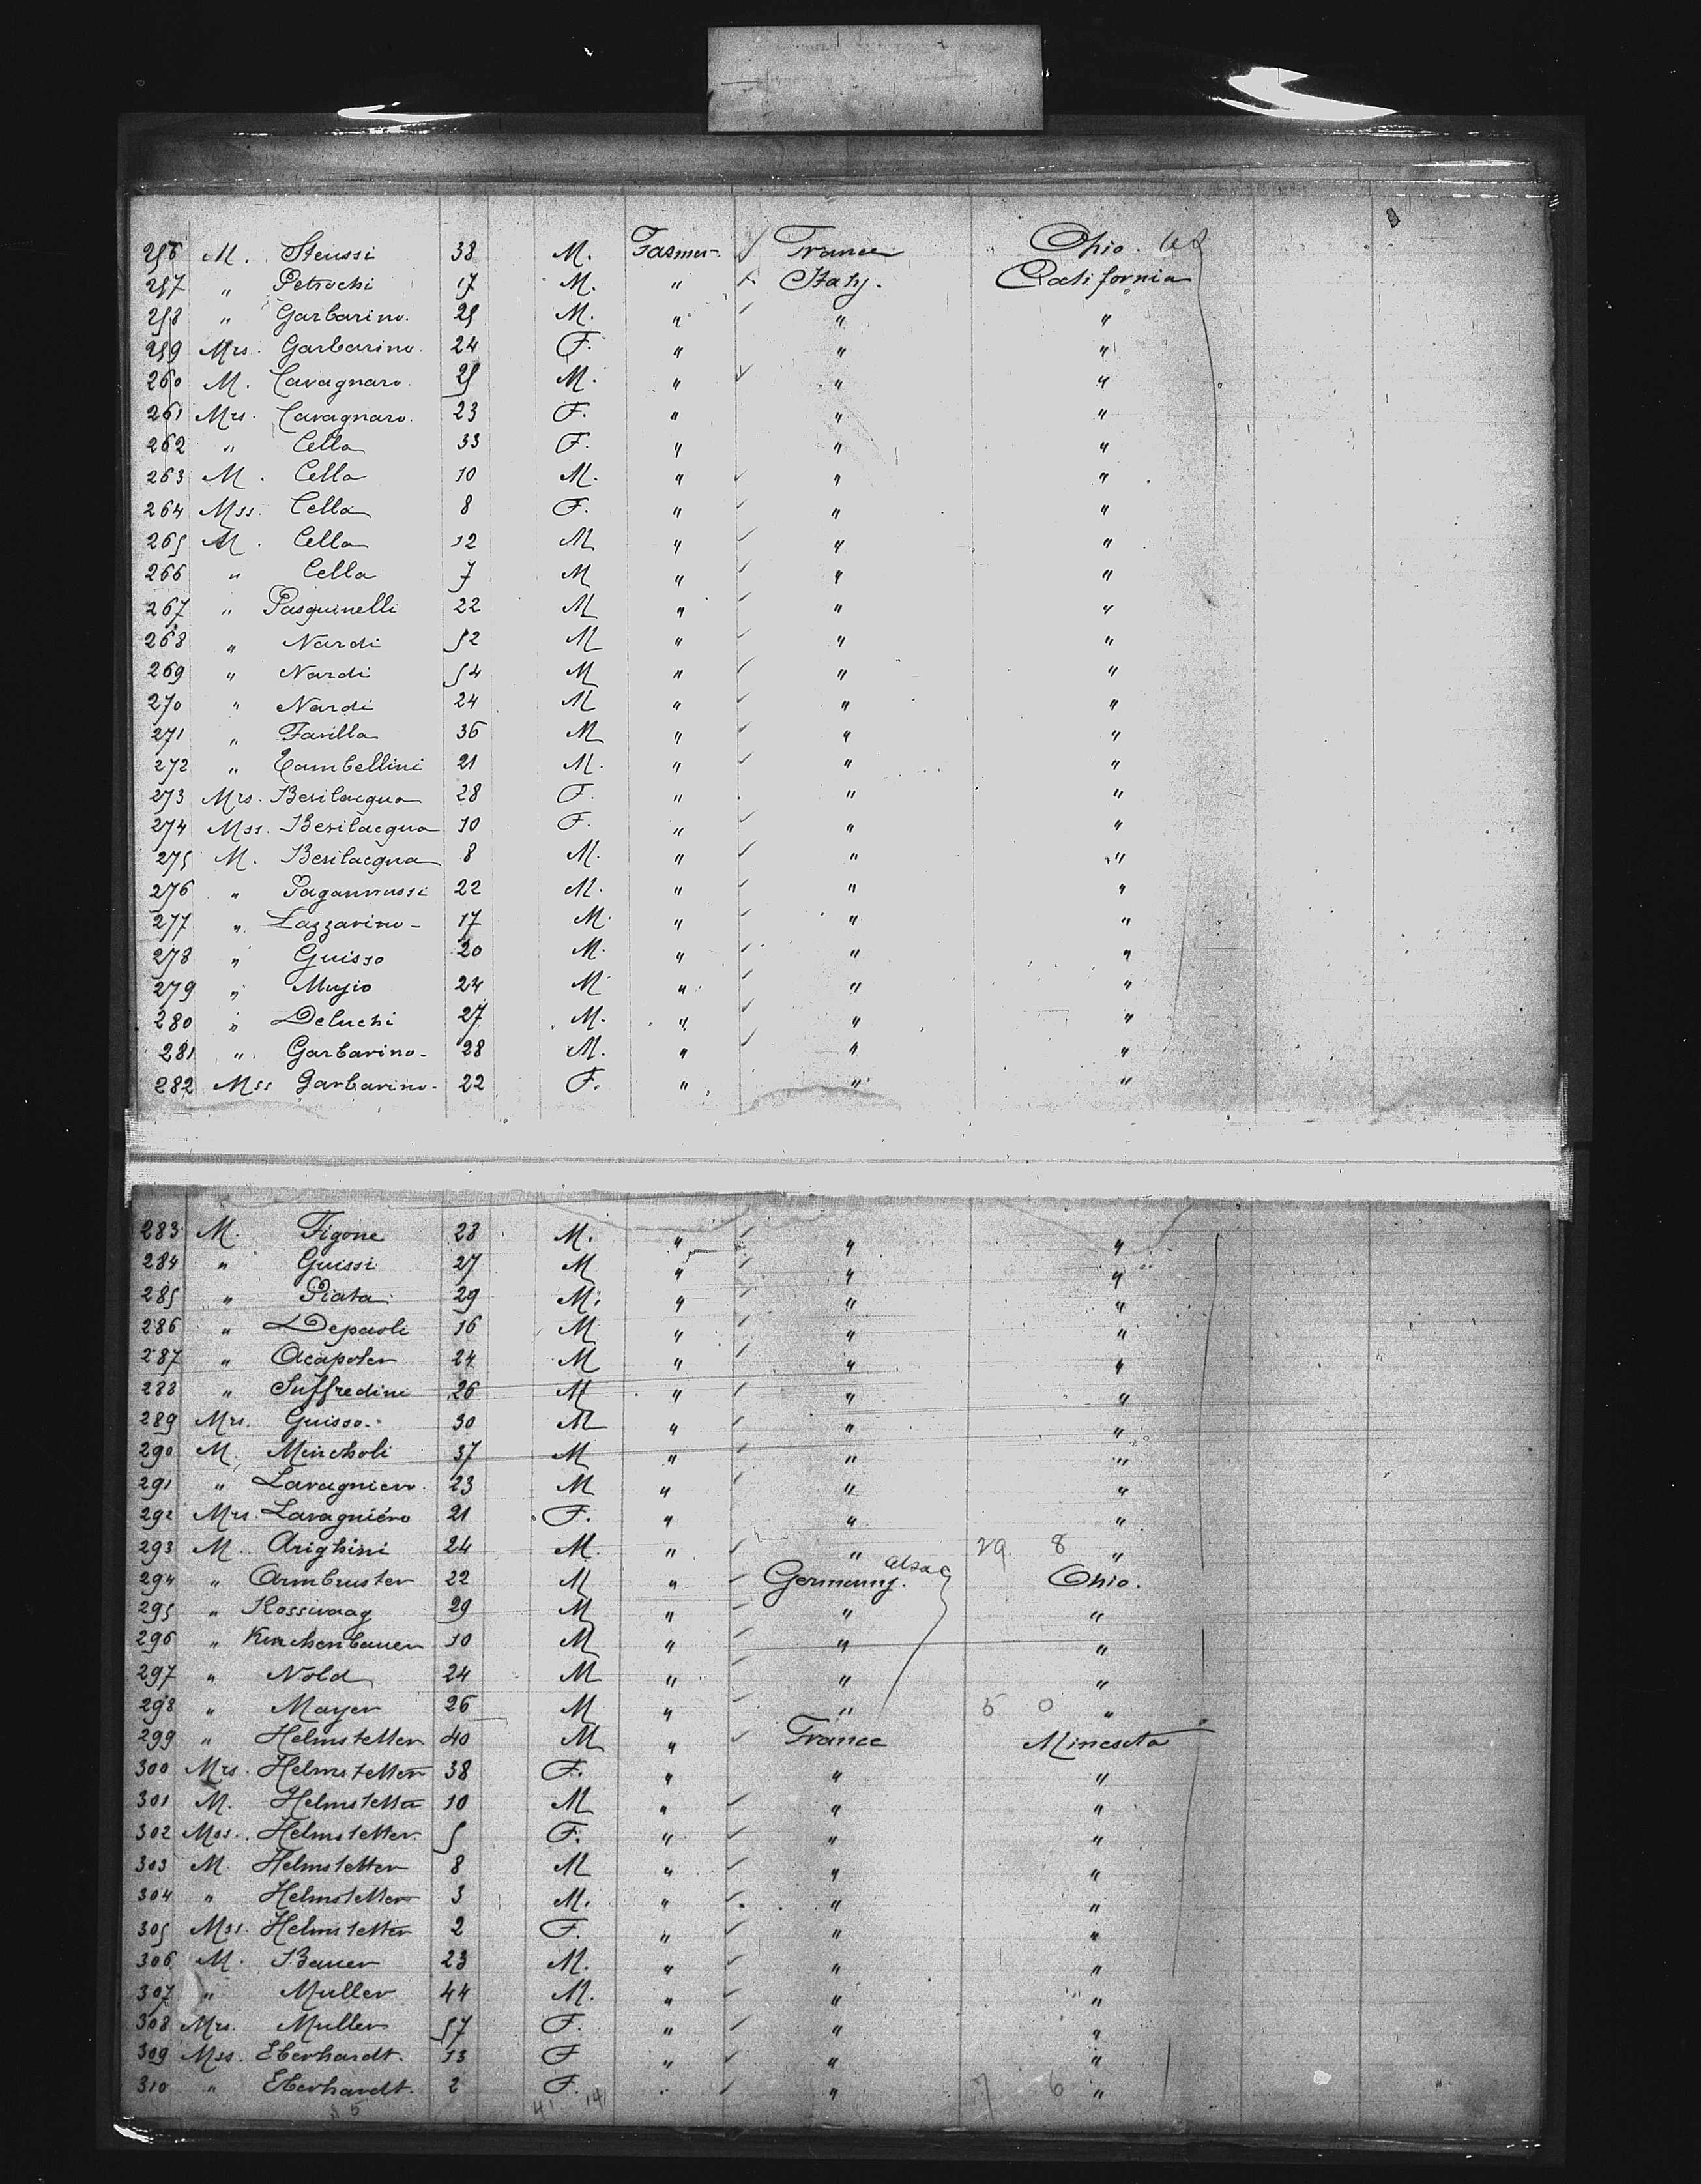 256 M. Steussi 38 M. Farmer France Ohio.
257 " Petrochi 17 M. " Italy. California
258 " Garbarino. 25 M. " " "
259 Mrs. Garbarino. 24 F. " " "
260 M. Cavagnaro. 25 M. " " "
261 Mrs. Cavagnaro. 23 F. " " "
262 " Cella 33 F. " " "
263 M. Cella 10 M. " " "
264 Mss. Cella 8 F. " " "
265 M. Cella 12 M " " "
266 " Cella 7 M " " "
267 " Pasquinelli 22 M " " "
268 " Nardi 52 M " " "
269 " Nardi 54 M " " "
270 " Nardi 24 M " " "
271 " Farilla 36 M " " "
272 " Tambellini 21 M. " " "
273 Mrs. Besilacqua 28 F. " " "
274 Mss. Besilacqua 10 F. " " "
275 M. Besilacqua 8 M. " " "
276 " Pagannussi 22 M. " " "
277 " Lazzarino - 17 M. " " "
278 " Guisso 20 M. " " "
279 " Mugio 24 M " " "
280 " Deluchi 27 M. " " "
281 " Garbarino - 28 M. " " "
282 Mss Garbarino - 22 F. " " "
283 M. Figone 28 M. " " "
284 " Guissi 27 M " " "
285 " Piata 29 M. " " "
286 " Depaoli 16 M " " "
287 " Acapoler 24 M " " "
288 " Suffredini 26 M " " "
289 Mrs. Guisso. 30 M " " "
290 M. Mincholi 37 M " " "
291 " Lavagniero. 23 M " " "
292 Mrs. Lavagniéro 21 F. " " "
293 M. Arighini 24 M. " " 29. 8 "
294 " Armbruster 22 M " Germany. Alsac Ohio.
295 " Rosswaag 29 M " " "
296 " Kirchenbauer 10 M " " "
297 " Nold 24 M " " "
298 " Mayer 26 M " " 5 0 "
299 " Helmstetter 40 M " France Minesota
300 Mrs. Helmstetter 38 F. " " "
301 M. Helmstetter 10 M " " "
302 Mss. Helmstetter. 5 F. " " "
303 M. Helmstetter 8 M " " "
304 " Helmstetter 3 M. " " "
305 Mss. Helmstetter 2 F. " " "
306 M. Bauer 23 M. " " "
307 " Muller 44 M. " " "
308 Mrs. Muller 57 F. " " "
309 Mss. Eberhardt. 13 F " " "
310 " Eberhardt. 2 F. " " 7 6 "
5 41 141